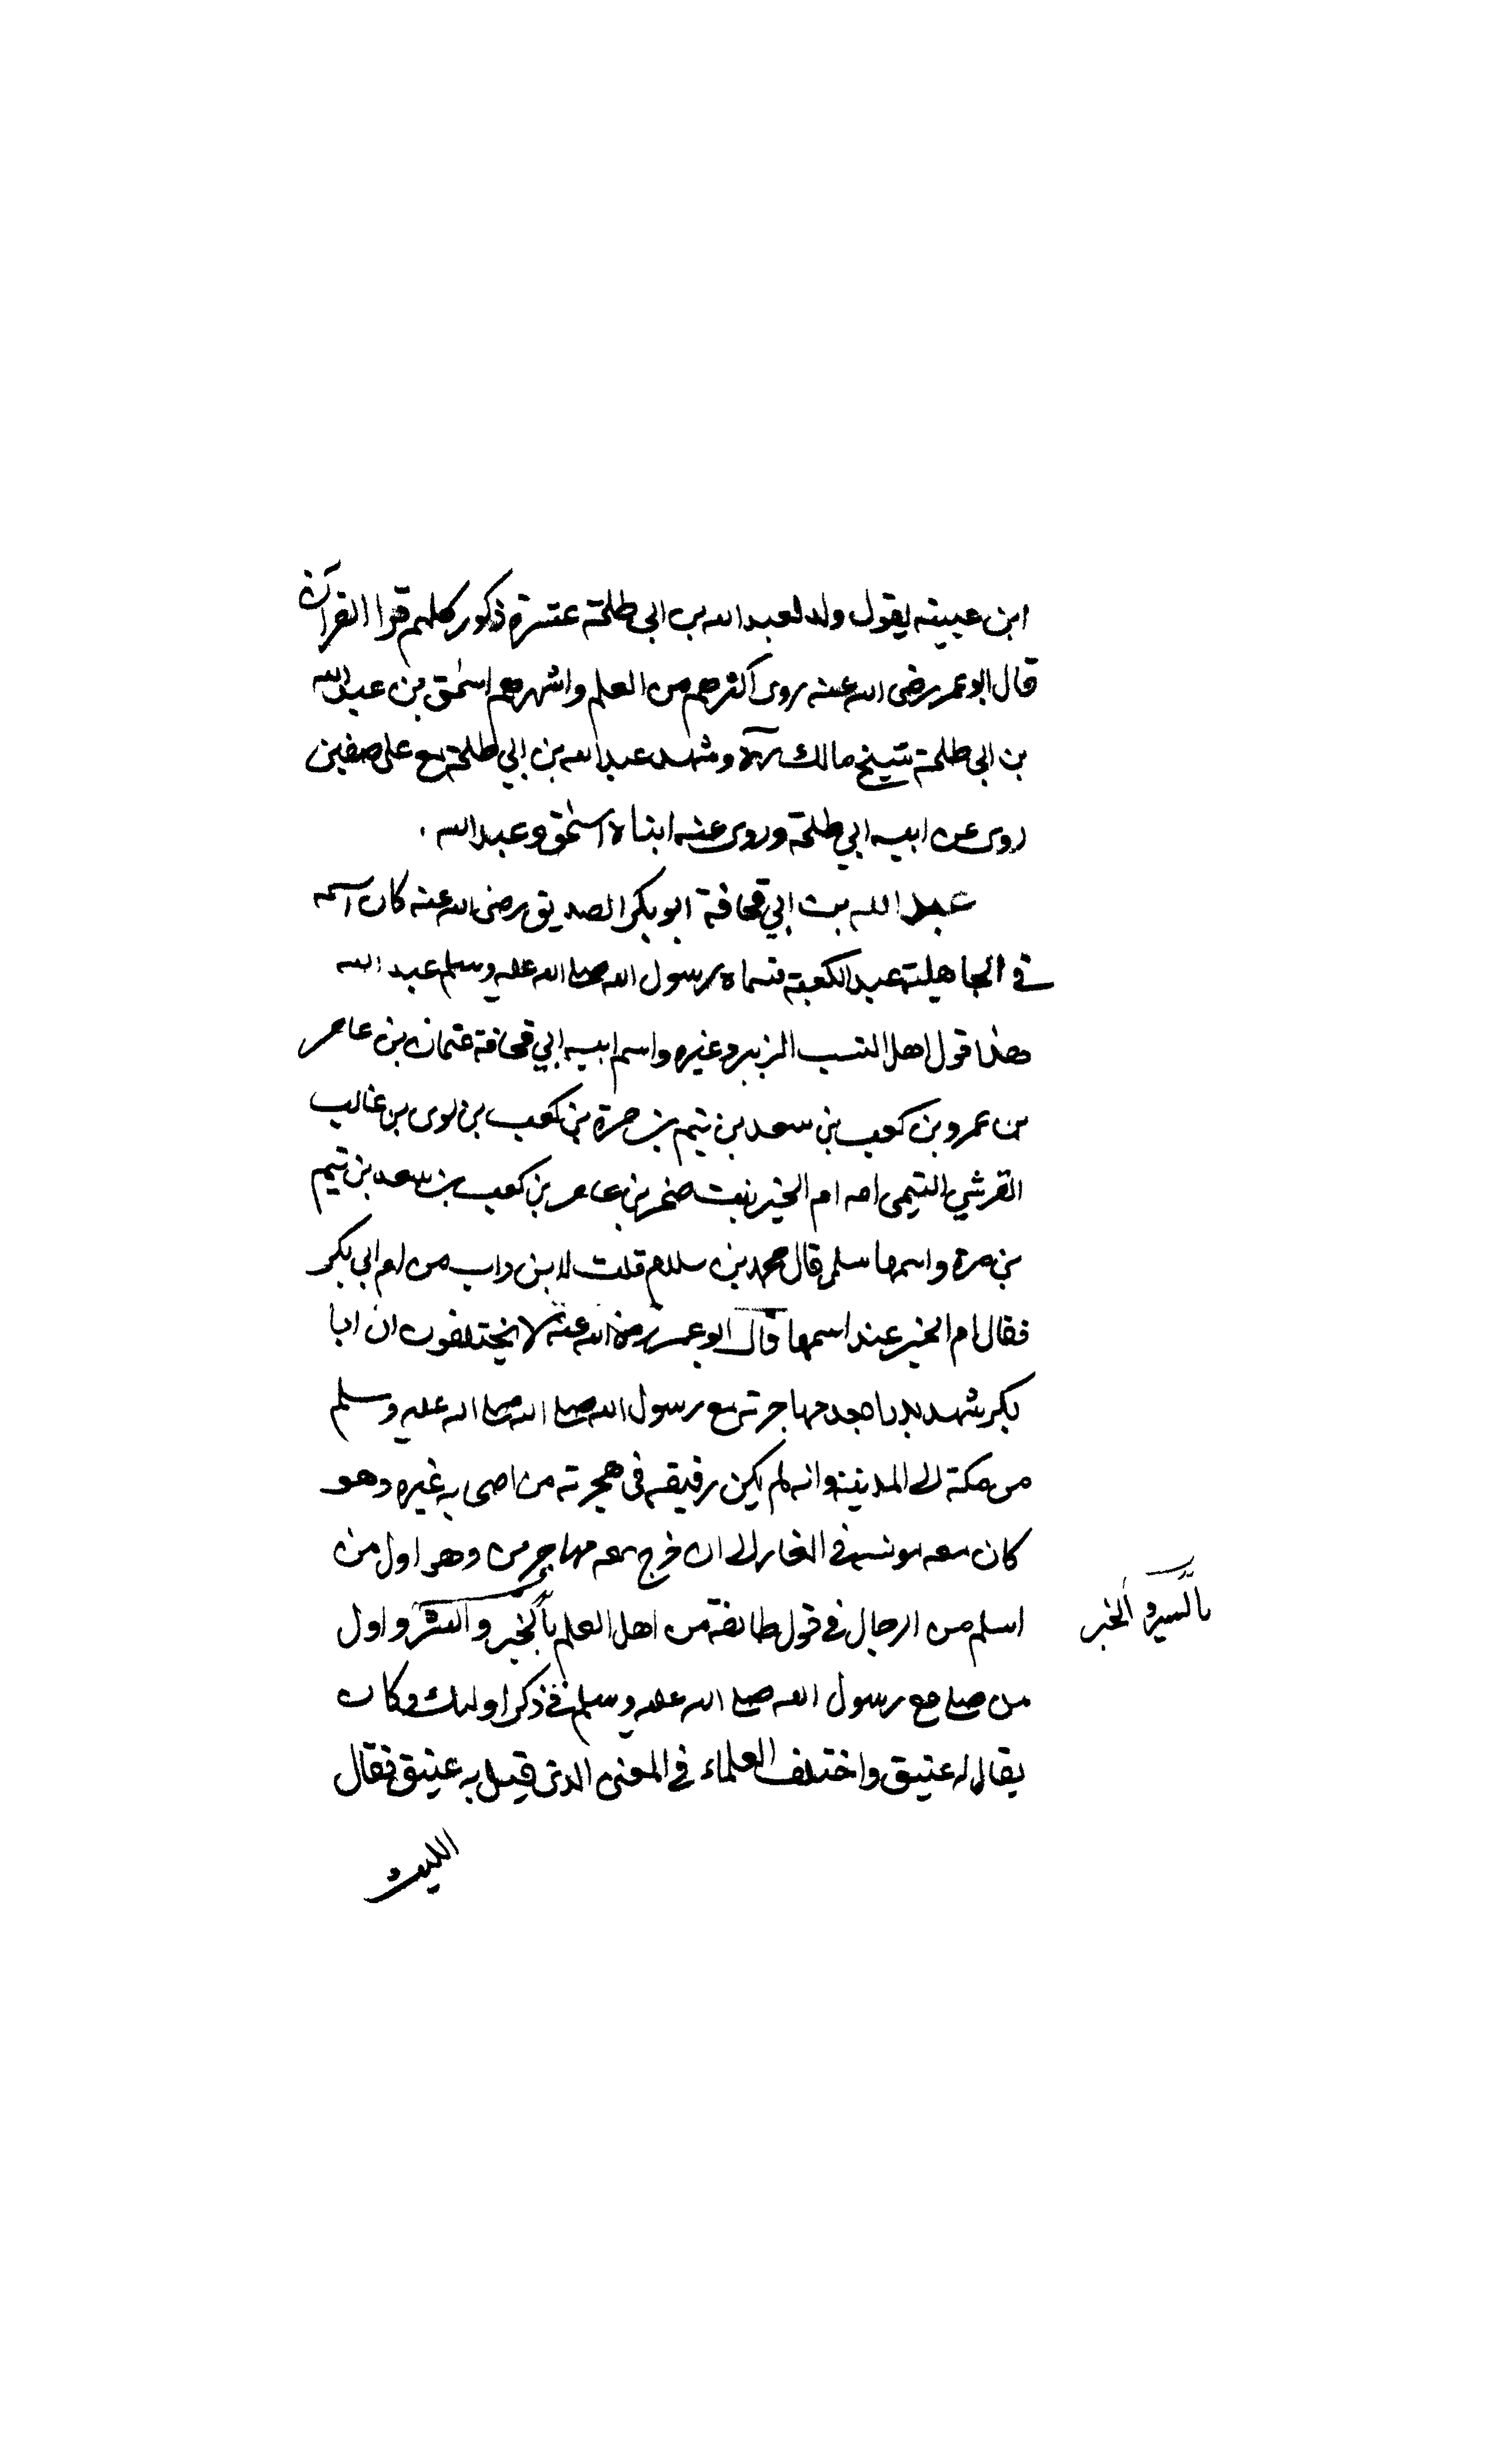 ابن عيينه يقول ولد لعبد الله بن ابي طلحة عشرة ذكور كلهم قرا القرآن
قال ابو عمر رضى الله عنه روى اكثرهم من العلم واشهرهم اسحق بن عبد الله
بن ابى طلحة شيخ مالك وشهد عبد الله بن ابي طلحة مع على صفين
روى عن ابيه ابي طلحة وروى عنه ابناه اسحق وعبد الله .
عبد الله بن ابي قحافة ابو بكر الصديق رضى الله عنه كان اسمه
فى الجاهلية عبد الكعبة فسماه رسول الله صلى الله عليه وسلم عبد الله
هذا قول اهل النسب الزبير وغيره واسم ابيه ابي قحافة عثمان بن عامر
بن عمرو بن كعب بن سعد بن تيم بن مرة بن كعب بن لوى بن غالب
القرشي التيمى امه ام الخير بنت صخر بن عامر بن كعب بن سعد بن تيم
بن مرة واسمها سلمى قال محمد بن سلام قلت لابن داب من ام ابي بكر
فقال ام الخير عند اسمها قال ابو عمر رضى الله عنه لا يختلفون ان ابا
بكر شهد بدرا بعد مهاجرته مع رسول الله صلى الله صلى الله عليه وسلم
من مكة الى المدينة وانه لم يكن رفيقه فى هجرته من اصحابه غيره وهو
كان معه مونسه فى الغار الى ان خرج معه مهاجرين وهو اول من
اسلم من الرجال فى قول طائفة من اهل العلم بالخبر والسير واول
بالسير والخبر
من صلى مع رسول الله صلى الله عليه وسلم فى ذكر اوليك وكان
يقال له عتيق واختلف العلماء فى المعنى الذى قيل به عتيق فقال
الليث